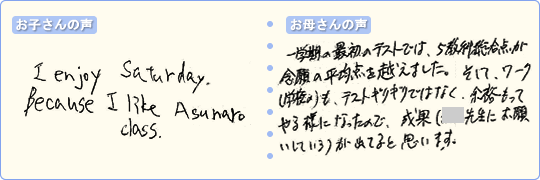 お子さんの声
I enjoy Saturday.
Because I like Asunaro
class.
お母さんの声
一学期の最初のテストでは、5教科総合点が
念願の平均点を越えました。そして、ワーク
(学校の)も、テストギリギリではなく、余裕もって
やる様になったので、成果(先生にお願
いしている)が出てると思います。